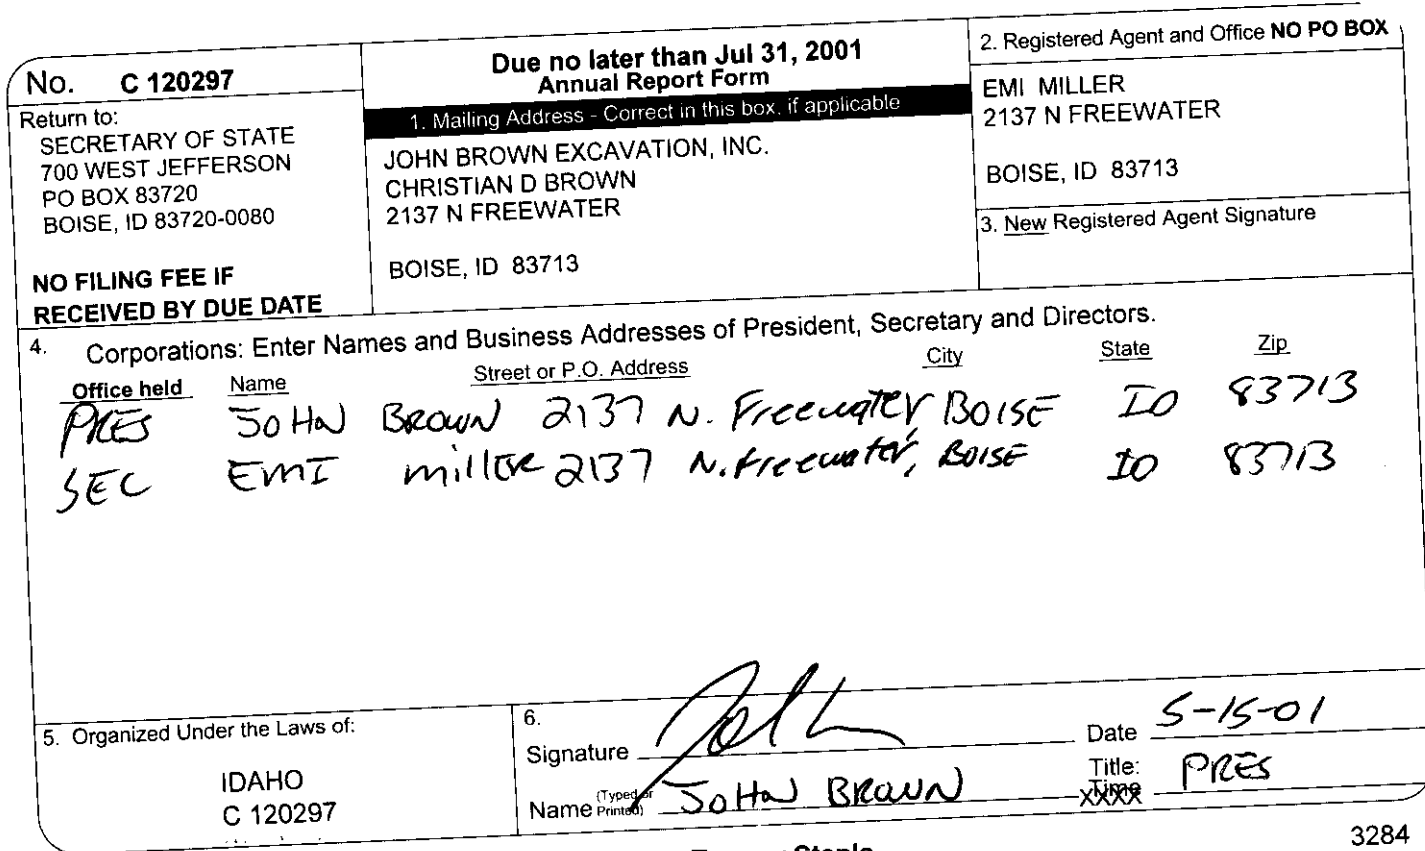 No. C 120297
Return to:
SECRETARY OF STATE
700 WEST JEFFERSON
PO BOX 83720
BOISE, ID 83720-0080
NO FILING FEE IF
RECEIVED BY DUE DATE
Due no later than Jul 31, 2001
Annual Report Form
1. Mailing Address - Correct in this box, if applicable
JOHN BROWN EXCAVATION, INC.
CHRISTIAN D BROWN
2137 N FREEWATER
BOISE, ID 83713
2. Registered Agent and Office NO PO BOX
EMI MILLER
2137 N FREEWATER
BOISE, ID 83713
3. New Registered Agent Signature
4. Corporations: Enter Names and Business Addresses of President, Secretary and Directors.
Office held Name Street or P.O. Address City State Zip
PRES JOHN BROWN 2137 N. Freewater BOISE ID 83713
SEC EMI miller 2137 N. Freewater, BOISE ID 83713
5. Organized Under the Laws of:
IDAHO
C 120297
6.
Signature Date 5-15-01
Name (Typed or Printed) JOHN BROWN Title: PRES
3284